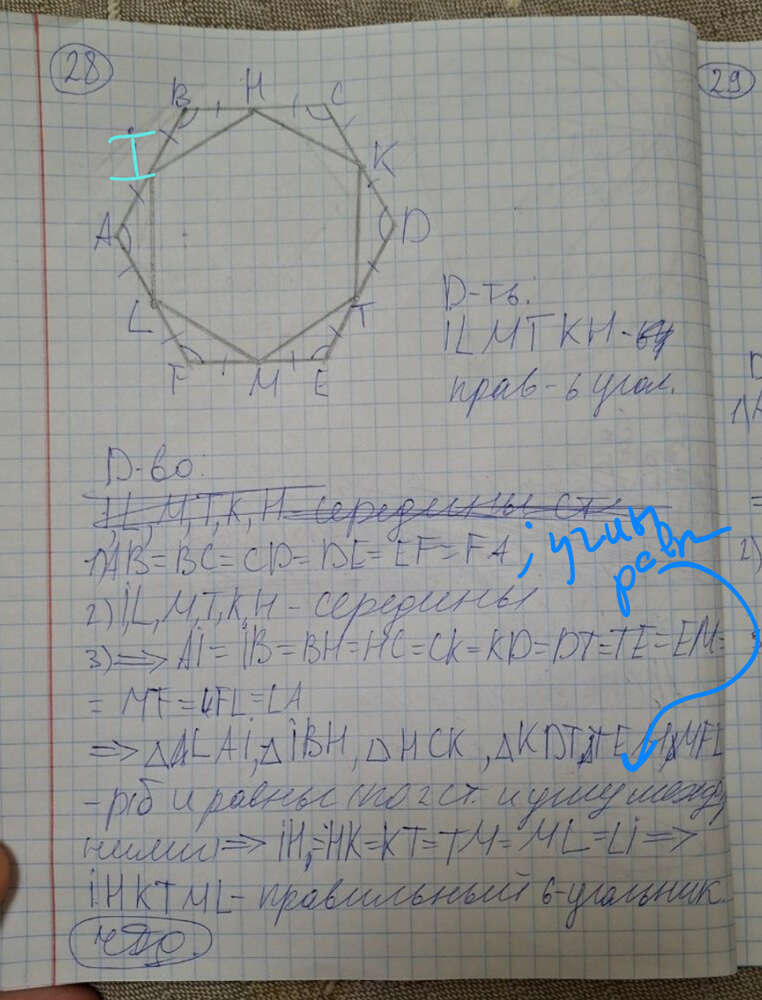 28
29
B H C
I
K
A
D
L
T
F M E
D-ть:
ILMTKH-
прав-6 угол.
D-во:
I, L, M, T, K, H - середины ст
1) AB=BC=CD=DE=EF=FA ; углы
равн
2) I, L, M, T, K, H - середины
2)
3) => AI=IB=BH=HC=CK=KD=DT=TE=EM=
= MF=FL=LA
=> △LAI, △IBH, △HCK, △KDT, △TEM, △MFL
- р/б и равны (по 2 ст. и углу между
ними) => IH=HK=KT=TM=ML=LI =>
IHKTML- правильный 6-угольник.
чтд.